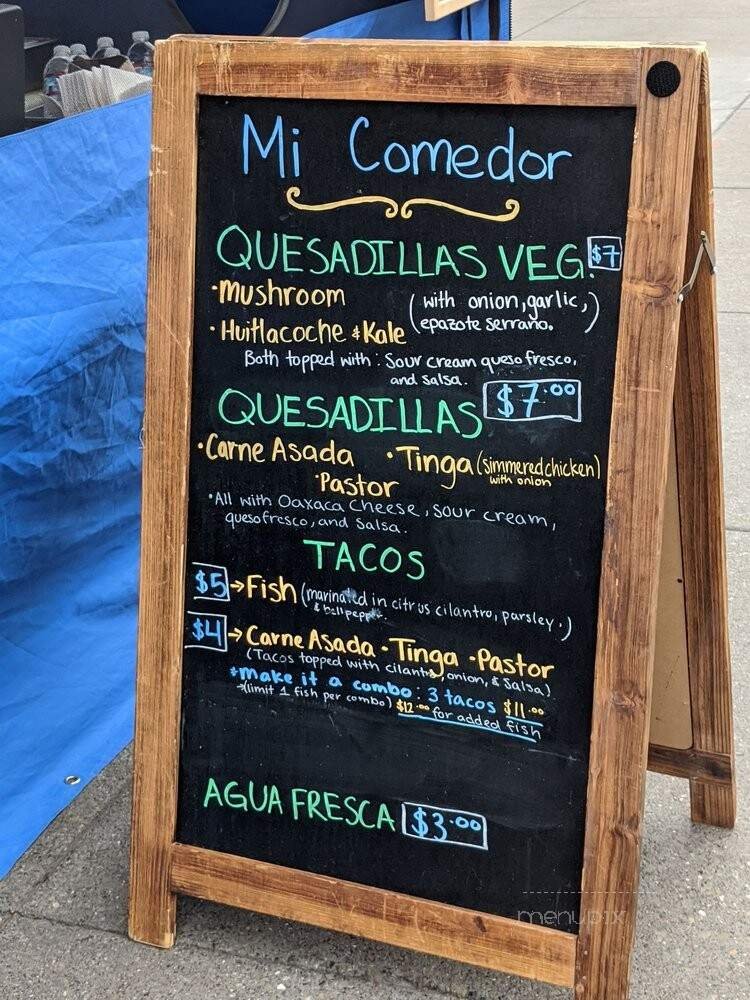 Mi Comedor
QUESADILLAS VEG. $7
•Mushroom (with onion, garlic,)
• Huitlacoche & Kale epazote serrano.
Both topped with: Sour cream queso fresco,
and salsa.
QUESADILLAS $7.00
•Carne Asada •Tinga (simmered chicken)
with onion
•Pastor
•All with Oaxaca Cheese, sour cream,
queso fresco, and Salsa.
TACOS
$5→Fish (marinated in citrus cilantro, parsley.)
& bell pepper.
$4→Carne Asada •Tinga •Pastor
(Tacos topped with cilantro, onion, & Salsa)
*make it a combo: 3 tacos $11.00
*(limit 1 fish per combo) $12.00 for added fish
AGUA FRESCA $3.00
menupix